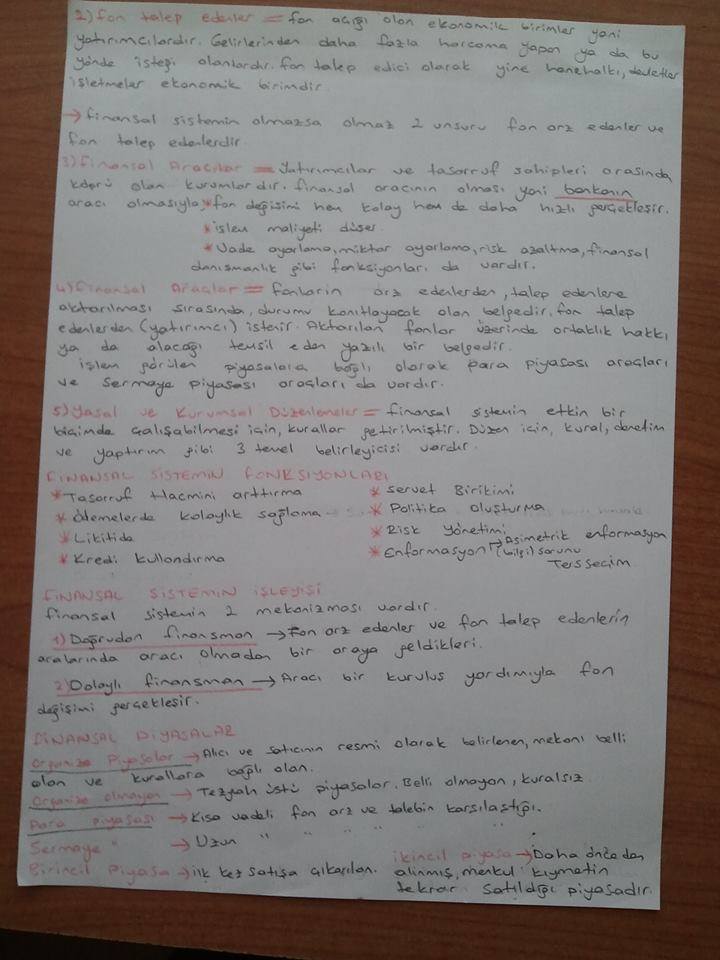 2) fon talep edenler = fon açığı olan ekonomik birimler yani
yatırımcılardır. Gelirlerinden daha fazla harcama yapan ya da bu
yönde isteği olanlardır. fon talep edici olarak yine hanehalkı, devletler
işletmeler ekonomik birimdir.
→ finansal sistemin olmazsa olmaz 2 unsuru fon arz edenler ve
fon talep edenlerdir.
3) finansal Aracılar = Yatırımcılar ve tasarruf sahipleri arasında
köprü olan kurumlardır. finansal aracının olması yani bankanın
aracı olmasıyla * fon değişimi hem kolay hem de daha hızlı gerçekleşir.
* işlem maliyeti düşer.
* Vade ayarlama, miktar ayarlama, risk azaltma, finansal
danışmanlık gibi fonksiyonları da vardır.
4) finansal Araçlar = fonların arz edenlerden, talep edenlere
aktarılması sırasında, durumu kanıtlayacak olan belgedir. fon talep
edenlerden (yatırımcı) istenir. Aktarılan fonlar üzerinde ortaklık hakkı
ya da alacağı temsil eden yazılı bir belgedir.
işlem görülen piyasalara bağlı olarak para piyasası araçları
ve Sermaye piyasası araçları da vardır.
5) Yasal ve Kurumsal Düzenlemeler = finansal sistemin etkin bir
biçimde çalışabilmesi için, kurallar getirilmiştir. Düzen için, kural, denetim
ve yaptırım gibi 3 temel belirleyicisi vardır.
FİNANSAL SİSTEMİN FONKSİYONLARI
* Tasarruf Hacmini arttırma * Servet Birikimi
* Ödemelerde kolaylık sağlama * Politika oluşturma
* Likitide * Risk Yönetimi
* Kredi kullandırma * Enformasyon → Asimetrik enformasyon
(bilgi) sorunu
Ters seçim
FİNANSAL SİSTEMİN İŞLEYİŞİ
finansal sistemin 2 mekanizması vardır.
1) Doğrudan finansman → Fon arz edenler ve fon talep edenlerin
aralarında aracı olmadan bir araya geldikleri.
2) Dolaylı finansman → Aracı bir kuruluş yardımıyla fon
değişimi gerçekleşir.
FİNANSAL PİYASALAR
Organize Piyasalar → Alıcı ve satıcının resmi olarak belirlenen, mekanı belli
olan ve kurallara bağlı olan.
Organize olmayan → Tezgah üstü piyasalar. Belli olmayan, kuralsız
Para piyasası → Kısa vadeli fon arz ve talebin karşılaştığı.
Sermaye " → Uzun " " " " " .
Birincil Piyasa → ilk kez satışa çıkarılan. ikincil piyasa → Daha önceden
alınmış, menkul kıymetin
tekrar satıldığı piyasadır.